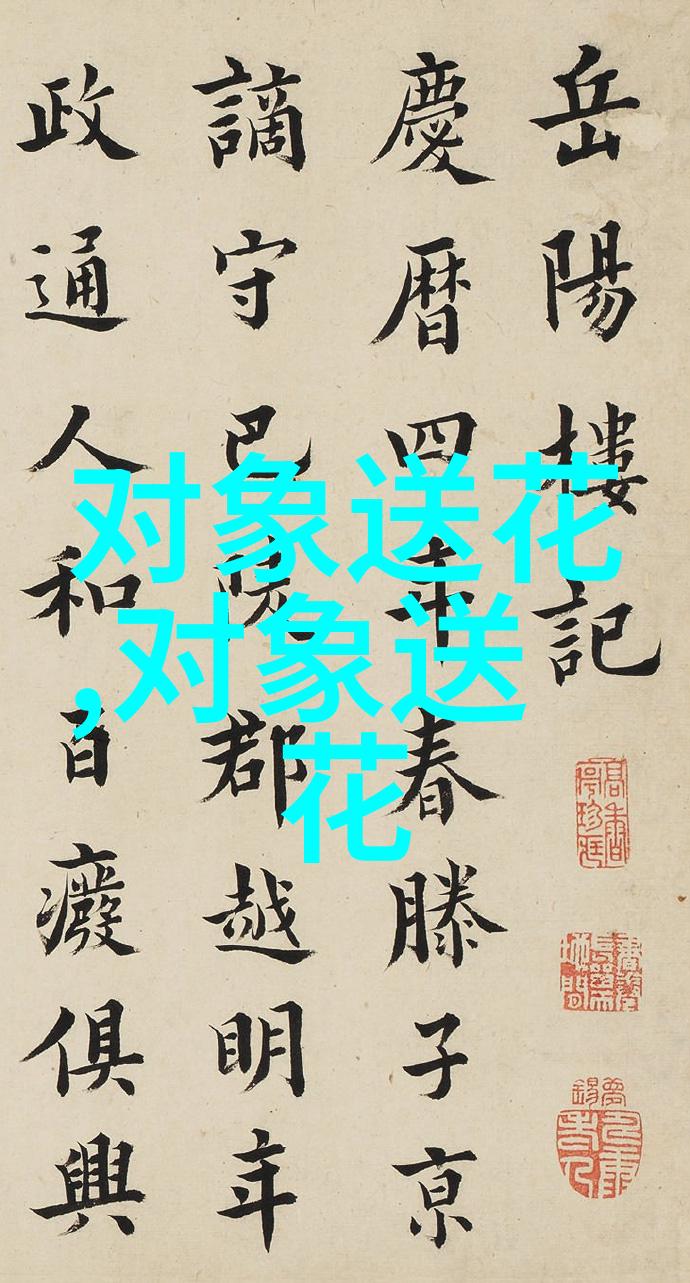 岳陽樓記
慶曆四年春滕子京
謫守巴陵郡越明年
政通人和百廢俱興
对象送花
,对象送
花